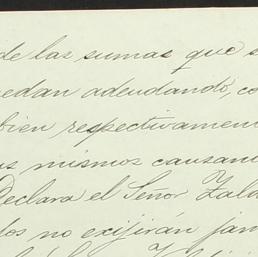 de las sumas que s
uedan adeudando, co
bien respectivamen
us mismos causan
Declara el Señor Zal
los no exijirán jam